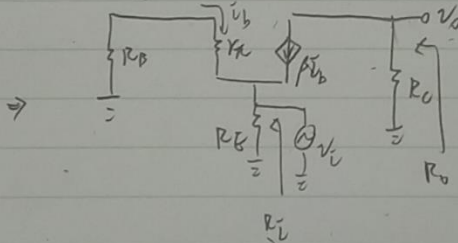 ⇒
i_b
R_B
r_π
βi_b
v_o
R_C
R_E
v_i
R_o
R_i